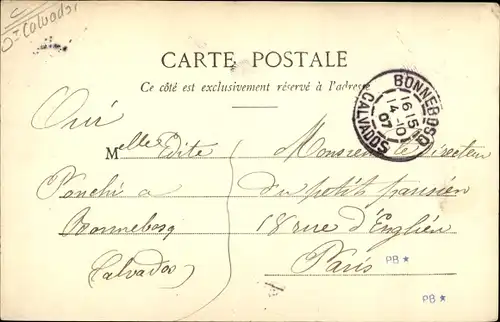 Calvador
CARTE POSTALE
Ce côté est exclusivement réservé à l'adresse
BONNEBOSQ
16 15
14 -10
07
CALVADOS
Oui
Melle Edite
Ponchi a
Bonnebosq
Calvados
Monsieur le Directeur
du petit parisien
18 rue d'Englien
Paris
PB *
PB *